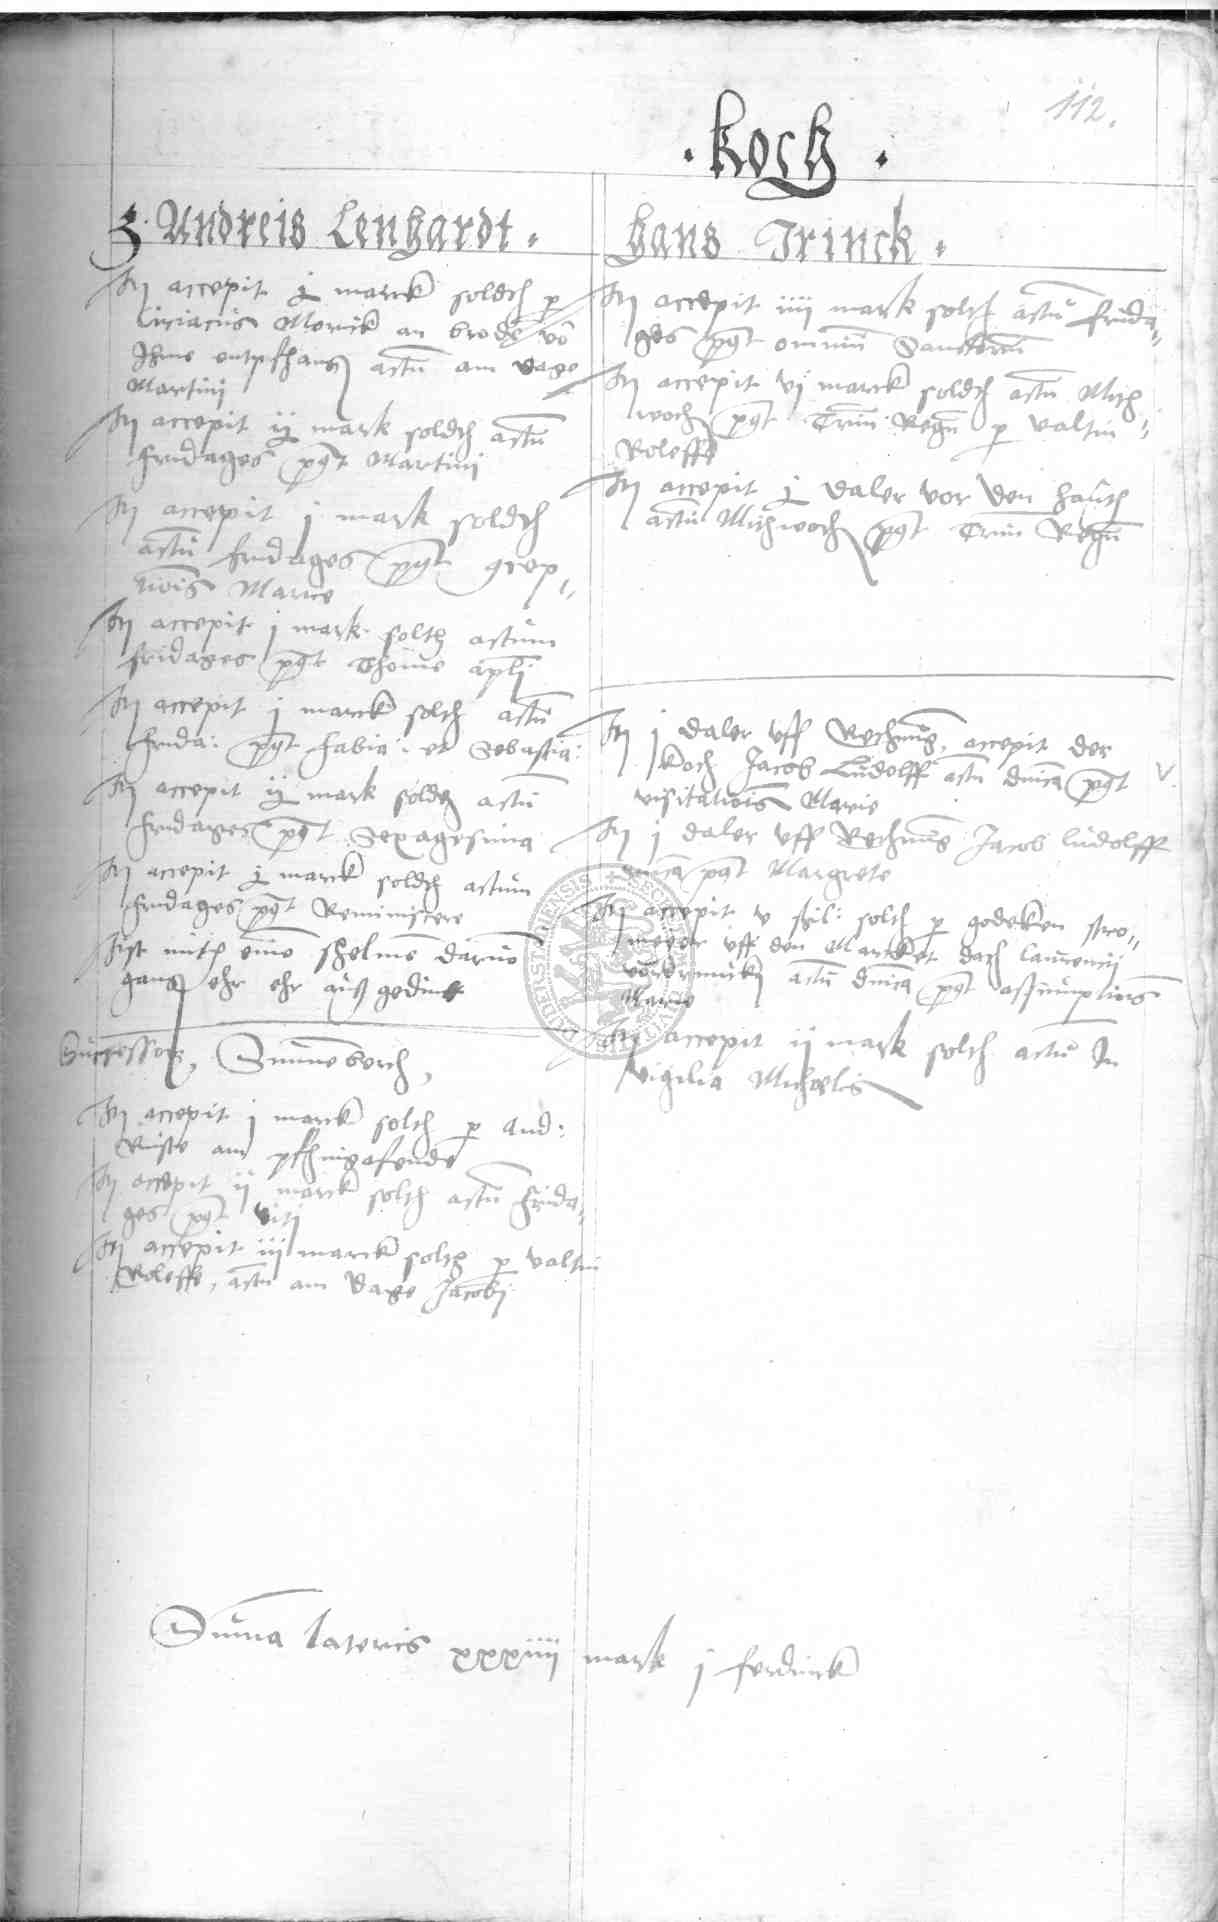 112.
. Koch .
3. Andreis Lenhardt .
It accepit j marck soldh p
Ciriacus Morick an brode vo
Ihme entpfhang actu am dage
Martini
It accepit ij mark soldh actu
fridages pqt Martini
It accepit j mark soldh
actu fridages pqt gcep„
tiois Marie
It accepit j mark solth actum
fridages pqt Thome apli
It accepit j marck solth actu
frida: pqt fabia: et Sebastia:
It accepit ij mark soldh actu
fridages pqt Sexagesima
It accepit j marck soldh actum
fridages pqt Reminiscere
Ist mith eine shelme daruo
gang ehr ehr auß gedint
Successor, Sunneborch,
It accepit j marck solth p And:
Riste am pfhingafende
It accepit ij marck solth actu frida„
ges pqt viti
It accepit iij marck solth p valtin
Roleffs, actu am dage Jacobj
hans Trinck .
It accepit iiij mark solth actu frida„
ges pqt omniu Sanctoru
It accepit vj marck soldh actu Mith„
woch pqt Trium Regu p valtin
Roleffs
It accepit j daler vor den hauth
actu Mithwoch pqt Trium Regu
It j daler uff Rechnug, accepit der
Koch Jacob Ludolff actu dnica pqt
visitatiois Marie
It j daler uff Rechnug Jacob ludolff
dnica pqt Margrete
It accepit v shil: solth p godeken stro„
meyer uff den Marcket dach laurencij
actu dnica pqt assumptiois
Marie
It accepit ij mark solth actu In
vigilia Michaelis
Suma lateris xxxiiij mark j ferdinck